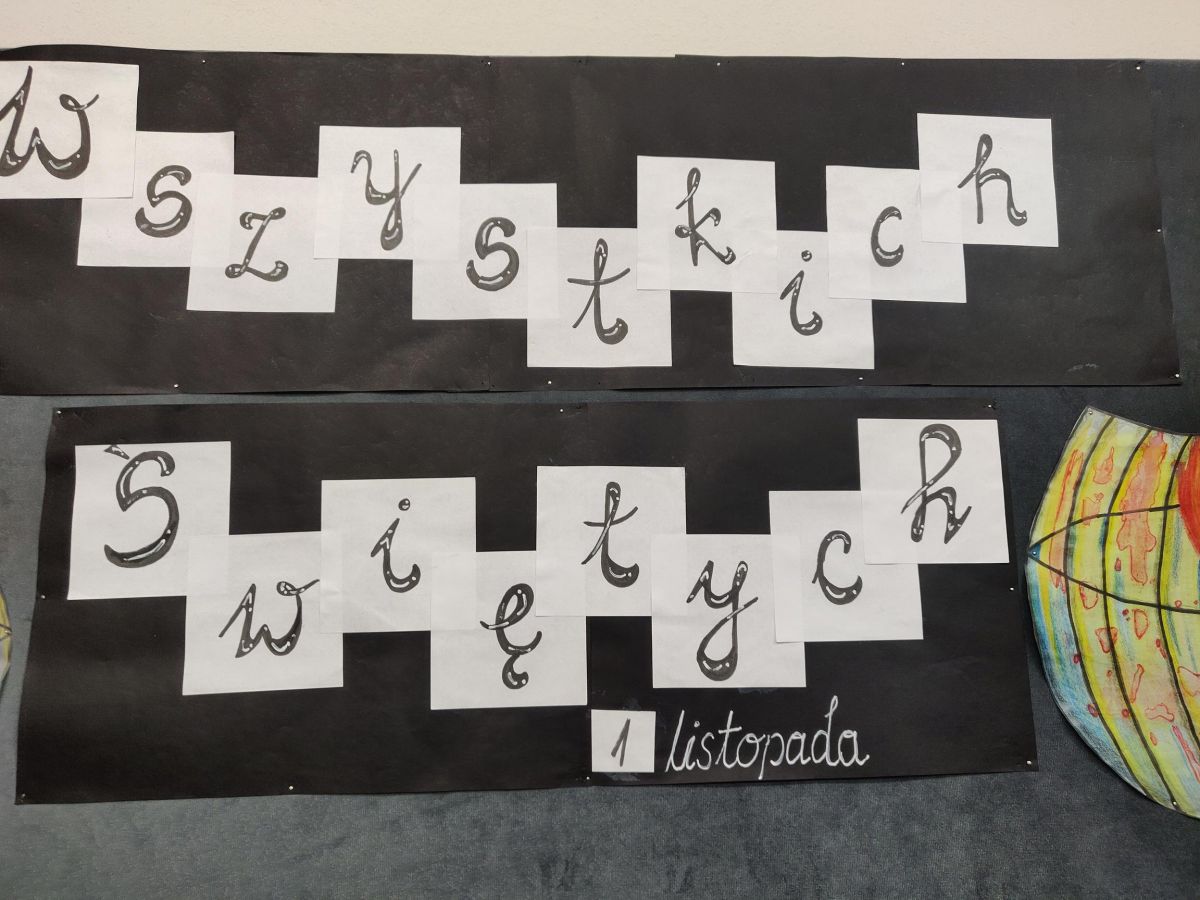 Wszystkich
Świętych
1 listopada